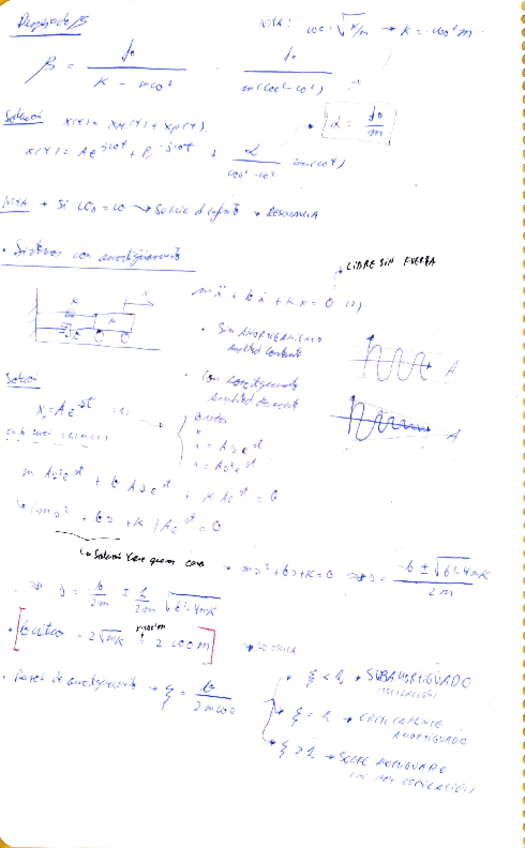 Despejado β
NOTA: ω₀ = √k/m → k = ω₀² m
β = f₀ / (k - mω²) = f₀ / (m(ω₀² - ω²))
α = f₀ / m
Solución x(t) = x_H(t) + x_P(t).
x(t) = A e^{jωt} + B^{-jωt} + α / (ω₀² - ω²) cos(ωt)
NOTA → Si ω₀ = ω → → RESONANCIA
• Sistemas con amortiguamiento
↳ LIBRE SIN FUERZA
mẍ + bẋ + kx = 0 (2)
K
m
x
• Sin AMORTIGUAMIENTO
Amplitud constante
A
• Con amortiguamiento
Amplitud
A
Solución
x = A e^{st}
ẋ = A s e^{st}
ẍ = A s² e^{st}
m A s² e^{st} + b A s e^{st} + k A e^{st} = 0
↳ (ms² + bs + k) A e^{st} = 0
↳ Solución tiene que ser cero → ms² + bs + k = 0 ⇒ s = (-b ± √b² - 4mk) / 2m
⇒ s = b / 2m ± 1 / 2m √b² - 4mk
• [b crítico = 2√mk = 2 ω₀ m]
• de amortiguamiento → ξ = b / 2mω₀
• ξ < 1 → SUBAMORTIGUADO
(OSCILACIÓN)
• ξ = 1 → CRÍTICAMENTE
AMORTIGUADO
• ξ > 1 → SOBRE AMORTIGUADO
(NO HAY OSCILACIÓN)